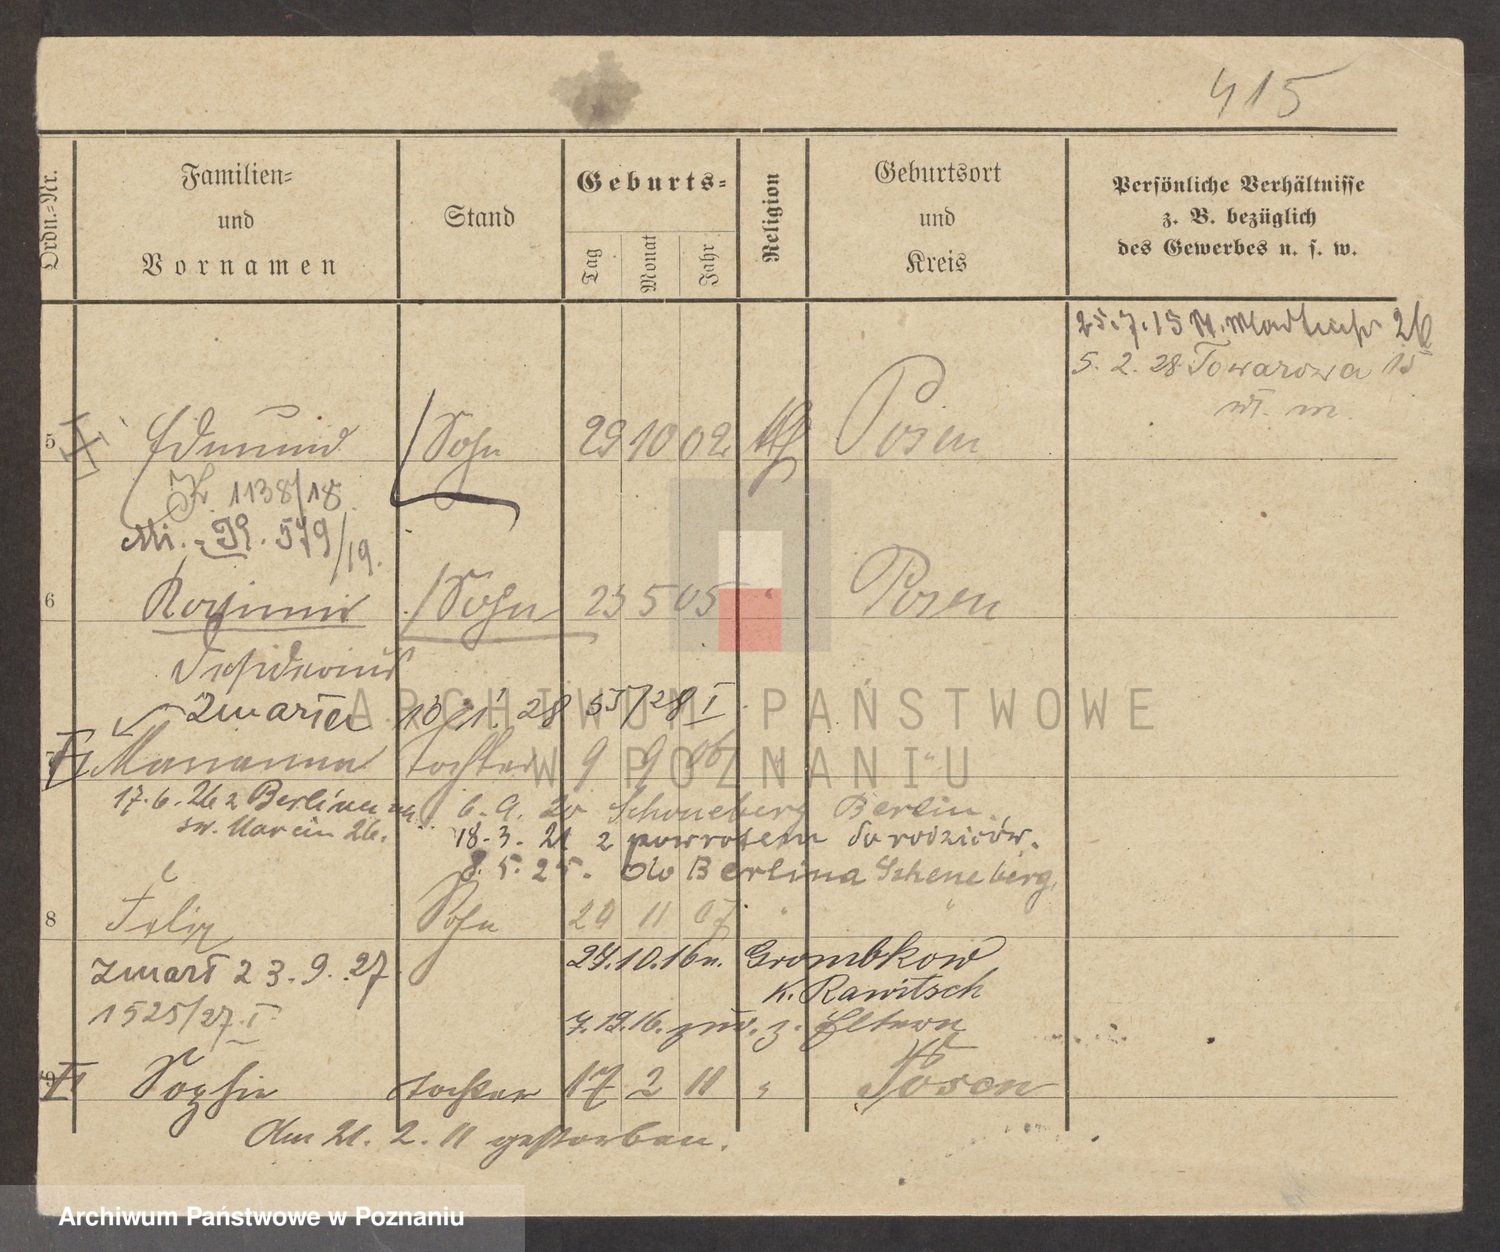 415
Ordn.-Nr.
Familien-
und
Vornamen
Stand
Geburts-
Tag
Monat
Jahr
Religion
Geburtsort
und
Kreis
Persönliche Verhältnisse
z. B. bezüglich
des Gewerbes u. s. w.
25.7.13 26
5. 2. 28 Towarowa 15
wł. m.
5 Edmund Sohn 29 10 02 Posen
1138/18
579/19.
6 Sohn 23 5 05 " Posen
Desiderius
Zmarła 10 1. 28 55/28 I
7 Marianna Tochter 9 9 06 " "
17.6.26 z Berlina
św. Marcin 26.
6.9.20 Schöneberg Berlin.
18.3.21 z powrotem do rodziców.
8.5.25. do Berlina Scheneberg.
8 Felix Sohn 29 11 07 " "
zmarł 23.9.27
1525/27 I
24.10.16 n. Grombkow
K. Rawitsch
7.12.16. zur. z. Eltern
9 Sophie Tochter 17 2 11 " Posen
Am 21. 2. 11 gestorben.
ARCHIWUM PAŃSTWOWE
W POZNANIU
Archiwum Państwowe w Poznaniu